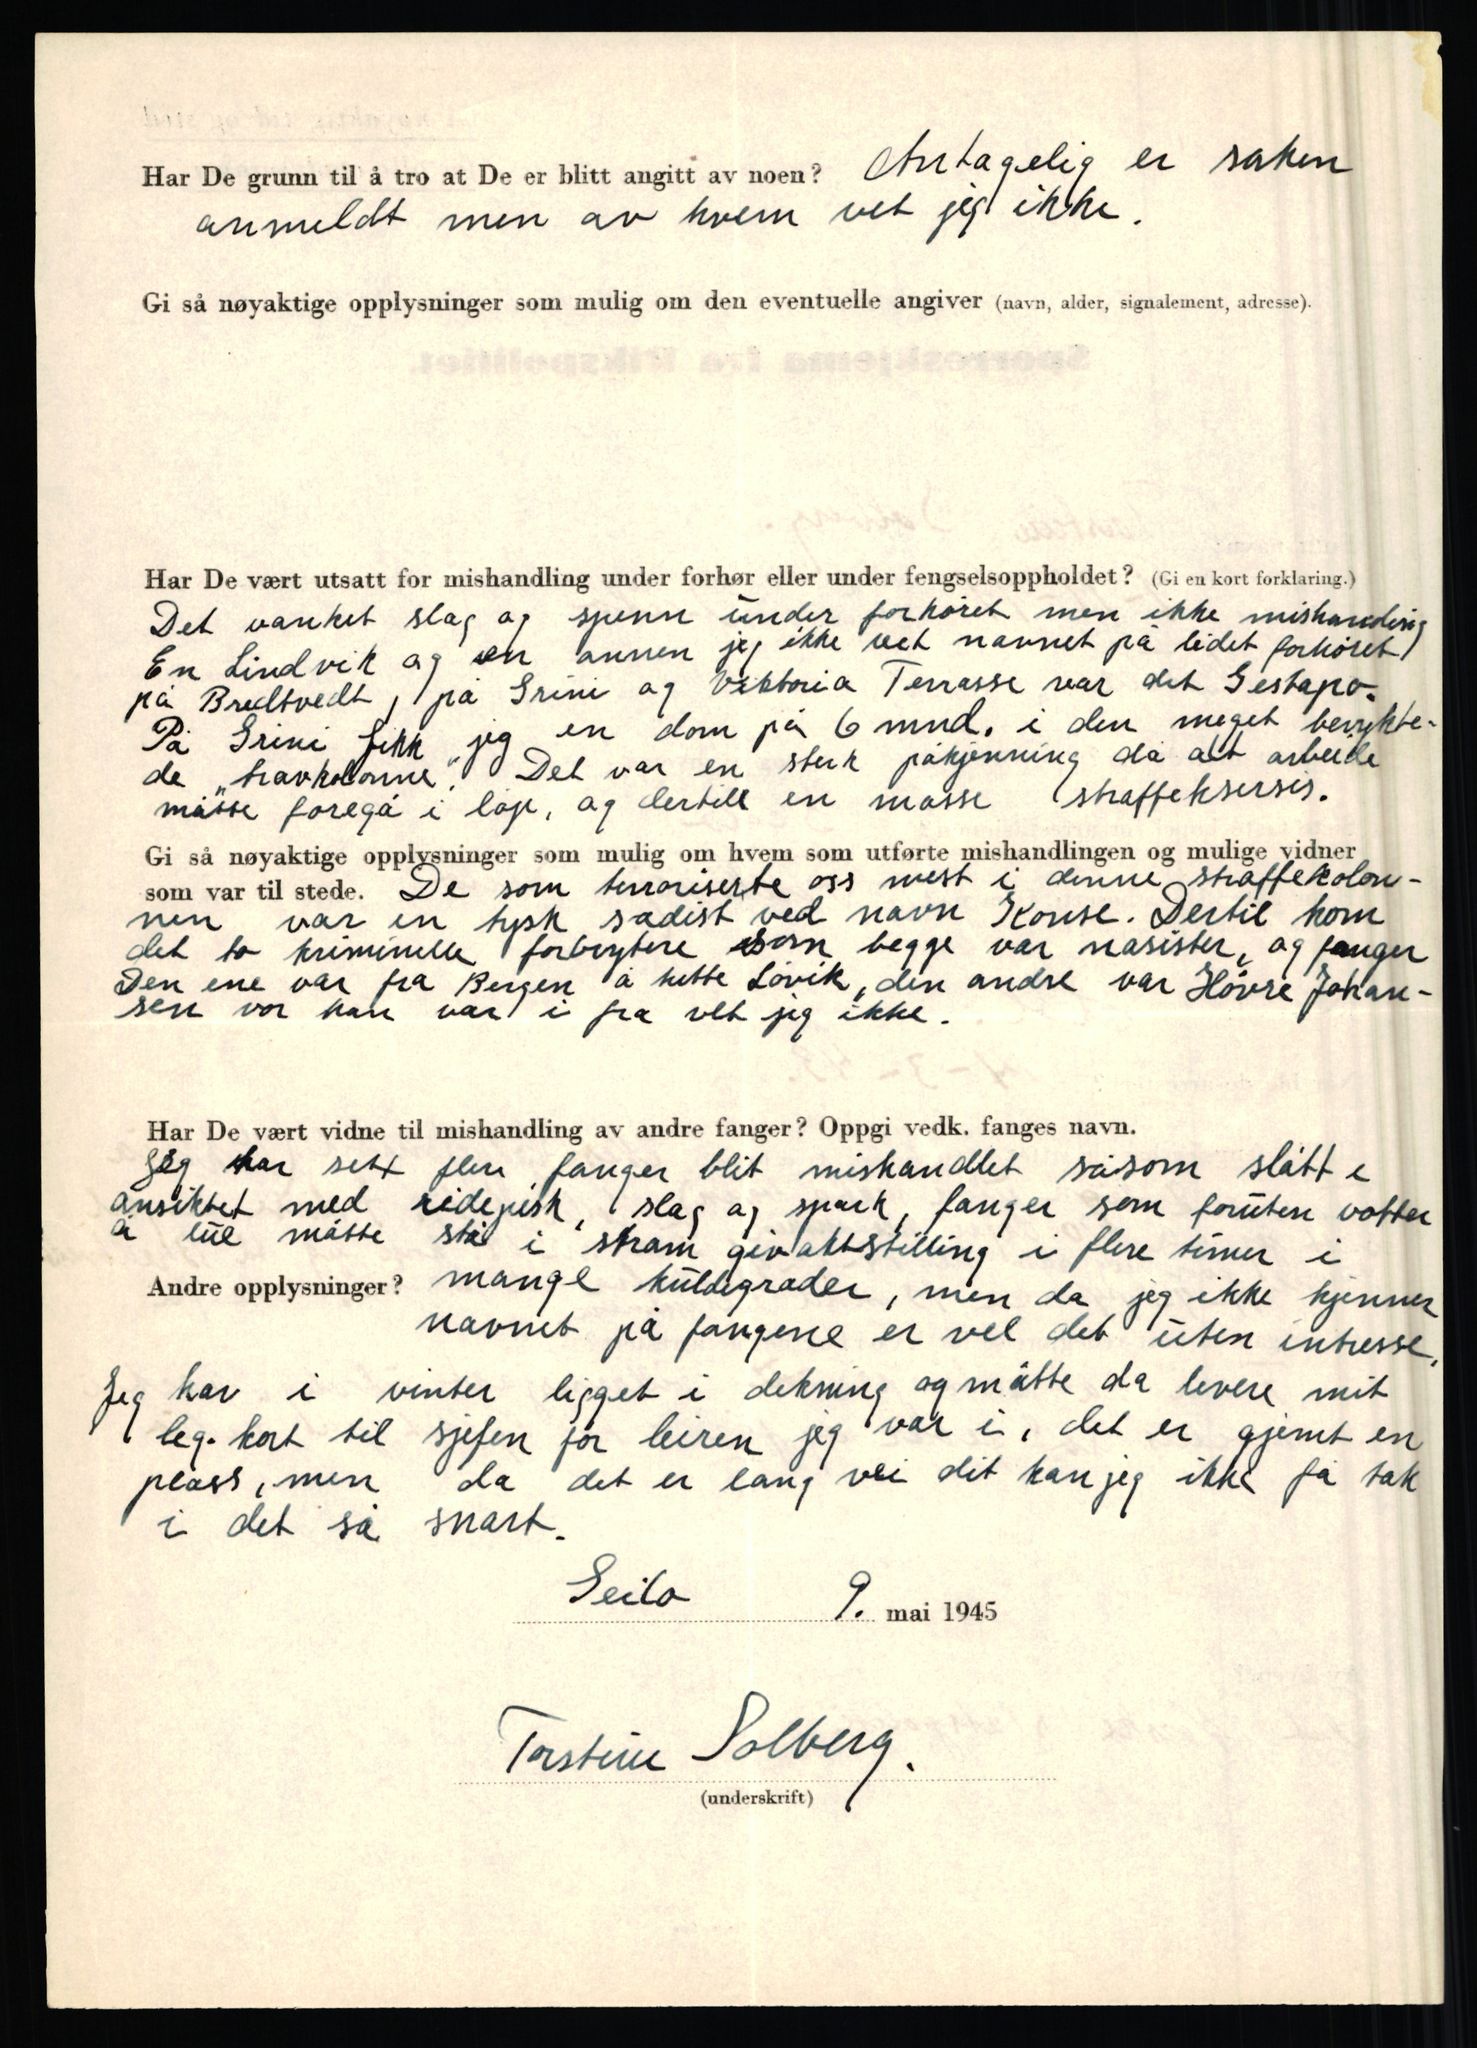 Har De grunn til å tro at De er blitt angitt av noen? Antagelig er saken
anmeldt men av hvem vet jeg ikke.
Gi så nøyaktige opplysninger som mulig om den eventuelle angiver (navn, alder, signalement, adresse).
Har De vært utsatt for mishandling under forhør eller under fengselsoppholdet? (Gi en kort forklaring.)
Det vanket slag og spenn under forhöret men ikke mishandling
En Lindvik og en annen jeg ikke vet navnet på ledet forhöret
på Bredtvedt, på Grini og Viktoria Terrasse var det Gestapo.
På Grini fikk jeg en dom på 6 mnd. i den meget berykte-
de „travkolonne". Det var en sterk påkjenning da alt arbeide
måtte foregå i löp, og dertill en masse straffeksersis.
Gi så nøyaktige opplysninger som mulig om hvem som utførte mishandlingen og mulige vidner
som var til stede. De som terroriserte oss mest i denne straffekolon-
nen var en tysk sadist ved navn Konse. Dertil kom
det to kriminelle forbrytere som begge var nasister, og fanger
Den ene var fra Bergen å hette Lövik, den andre var Hövre Johan-
sen vor han var i fra vet jeg ikke.
Har De vært vidne til mishandling av andre fanger? Oppgi vedk. fanges navn.
Jeg har set flere fanger blit mishandlet såsom slått i
ansiktet med ridepisk, slag og spark, fanger som foruten votter
å lue måtte stå i stram givaktstilling i flere timer i
Andre opplysninger? mange kuldegrader, men da jeg ikke kjenner
navnet på fangene er vel det uten intresse.
Jeg har i vinter ligget i dekning og måtte da levere mit
leg. kort til sjefen for leiren jeg var i, det er gjemt en
plass, men da det er lang vei dit kan jeg ikke få tak
i det så snart.
Geilo 9. mai 1945
Torstein Solberg.
(underskrift)